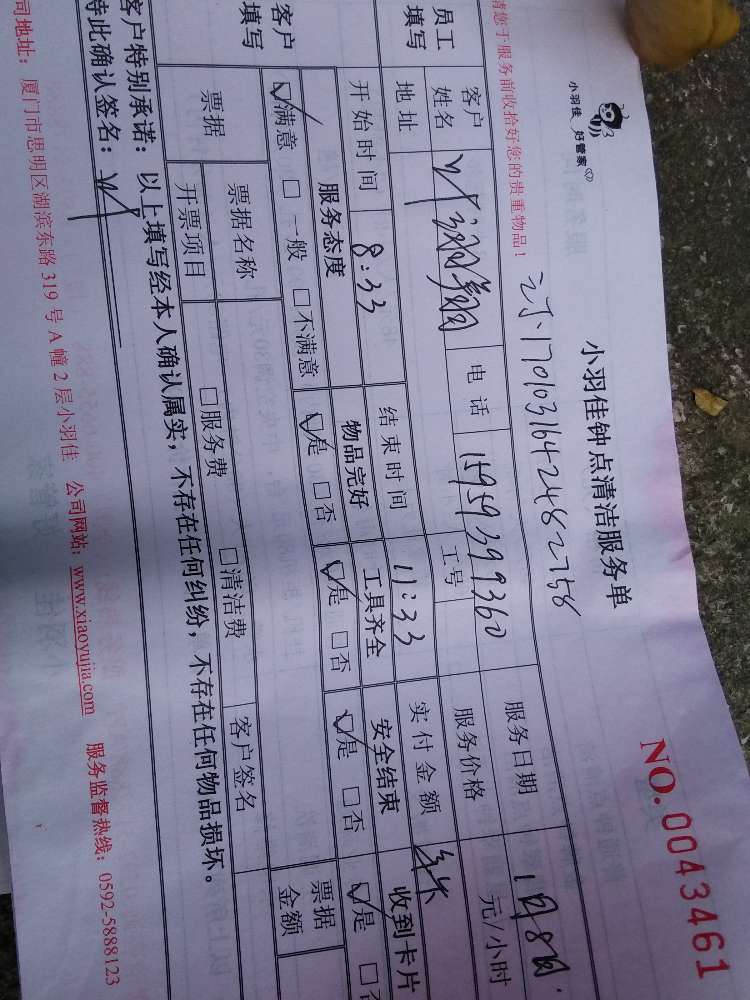 小羽佳 好管家
小羽佳钟点清洁服务单
NO. 0043461
请您于服务前收拾好您的贵重物品！
订:1701031642482758
员工填写
客户姓名 叶 翔 电话 15959399360 服务日期 1月8日
地址 工号 服务价格 元/小时
开始时间 8:33 结束时间 11:33 实付金额
客户填写
服务态度 物品完好 工具齐全 安全结束 收到卡片
☑满意 □一般 □不满意 ☑是 □否 ☑是 □否 ☑是 □否 ☑是 □否
票据 票据名称 □服务费 □清洁费 客户签名 票据金额
开票项目
客户特别承诺：以上填写经本人确认属实，不存在任何纠纷，不存在任何物品损坏。
特此确认签名：叶
司地址：厦门市思明区湖滨东路 319 号 A 幢 2 层小羽佳 公司网站：www.xiaoyujia.com 服务监督热线：0592-5888123